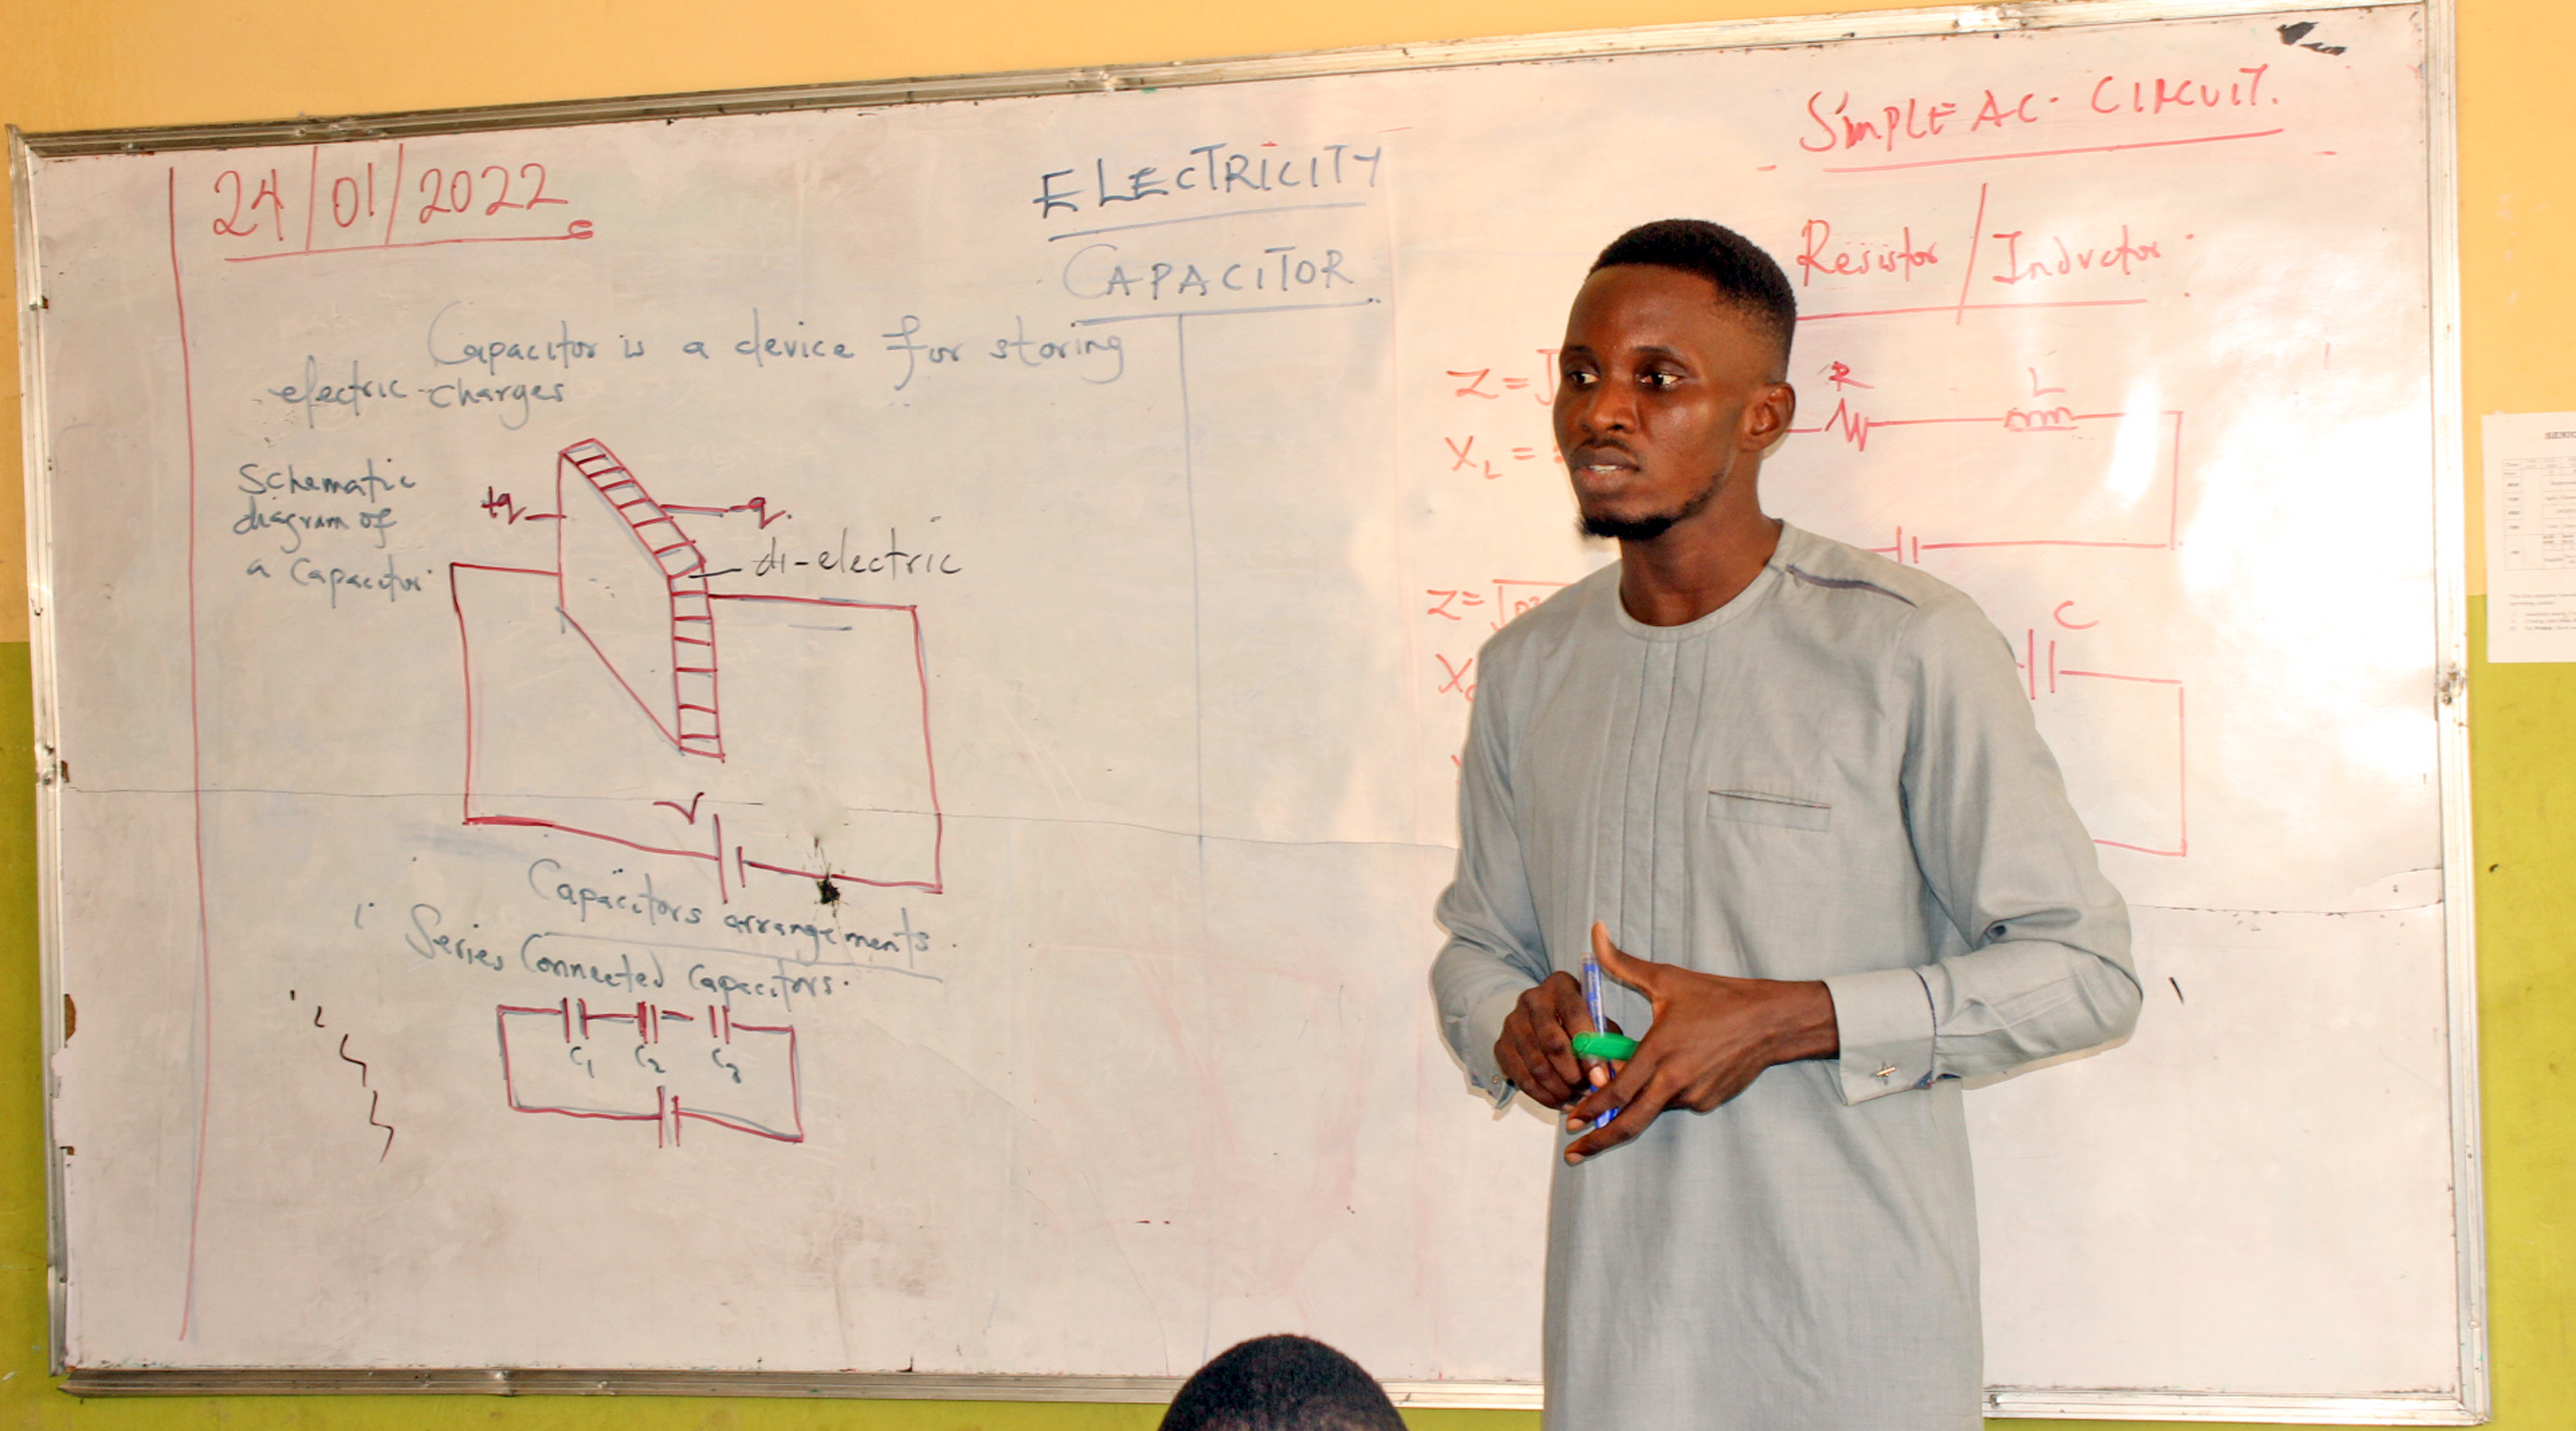 24/01/2022
ELECTRICITY
CAPACITOR
Capacitor is a device for storing
electric charges
Schematic
diagram of
a Capacitor
+q
-q.
di-electric
V
Capacitors arrangements.
i Series Connected Capacitors.
C1 C2 C3
SIMPLE AC. CIRCUIT.
Resistor / Inductor
Z = √
R L
XL =
Z = √
C